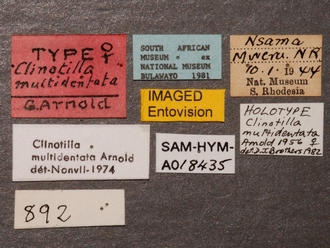 TYPE ♀
"Clinotilla
multidentata
G. Arnold
SOUTH AFRICAN
MUSEUM ex
NATIONAL MUSEUM
BULAWAYO 1981
Nsama
Mweru. N.R
10.1.1944
Nat. Museum
S. Rhodesia
IMAGED
Entovision
Clinotilla
multidentata Arnold
dét-Nonvll-1974
SAM-HYM-
A018435
HOLOTYPE
Clinotilla
multidentata
Arnold 1956 ♀
det. D.J. Brothers 1982
892